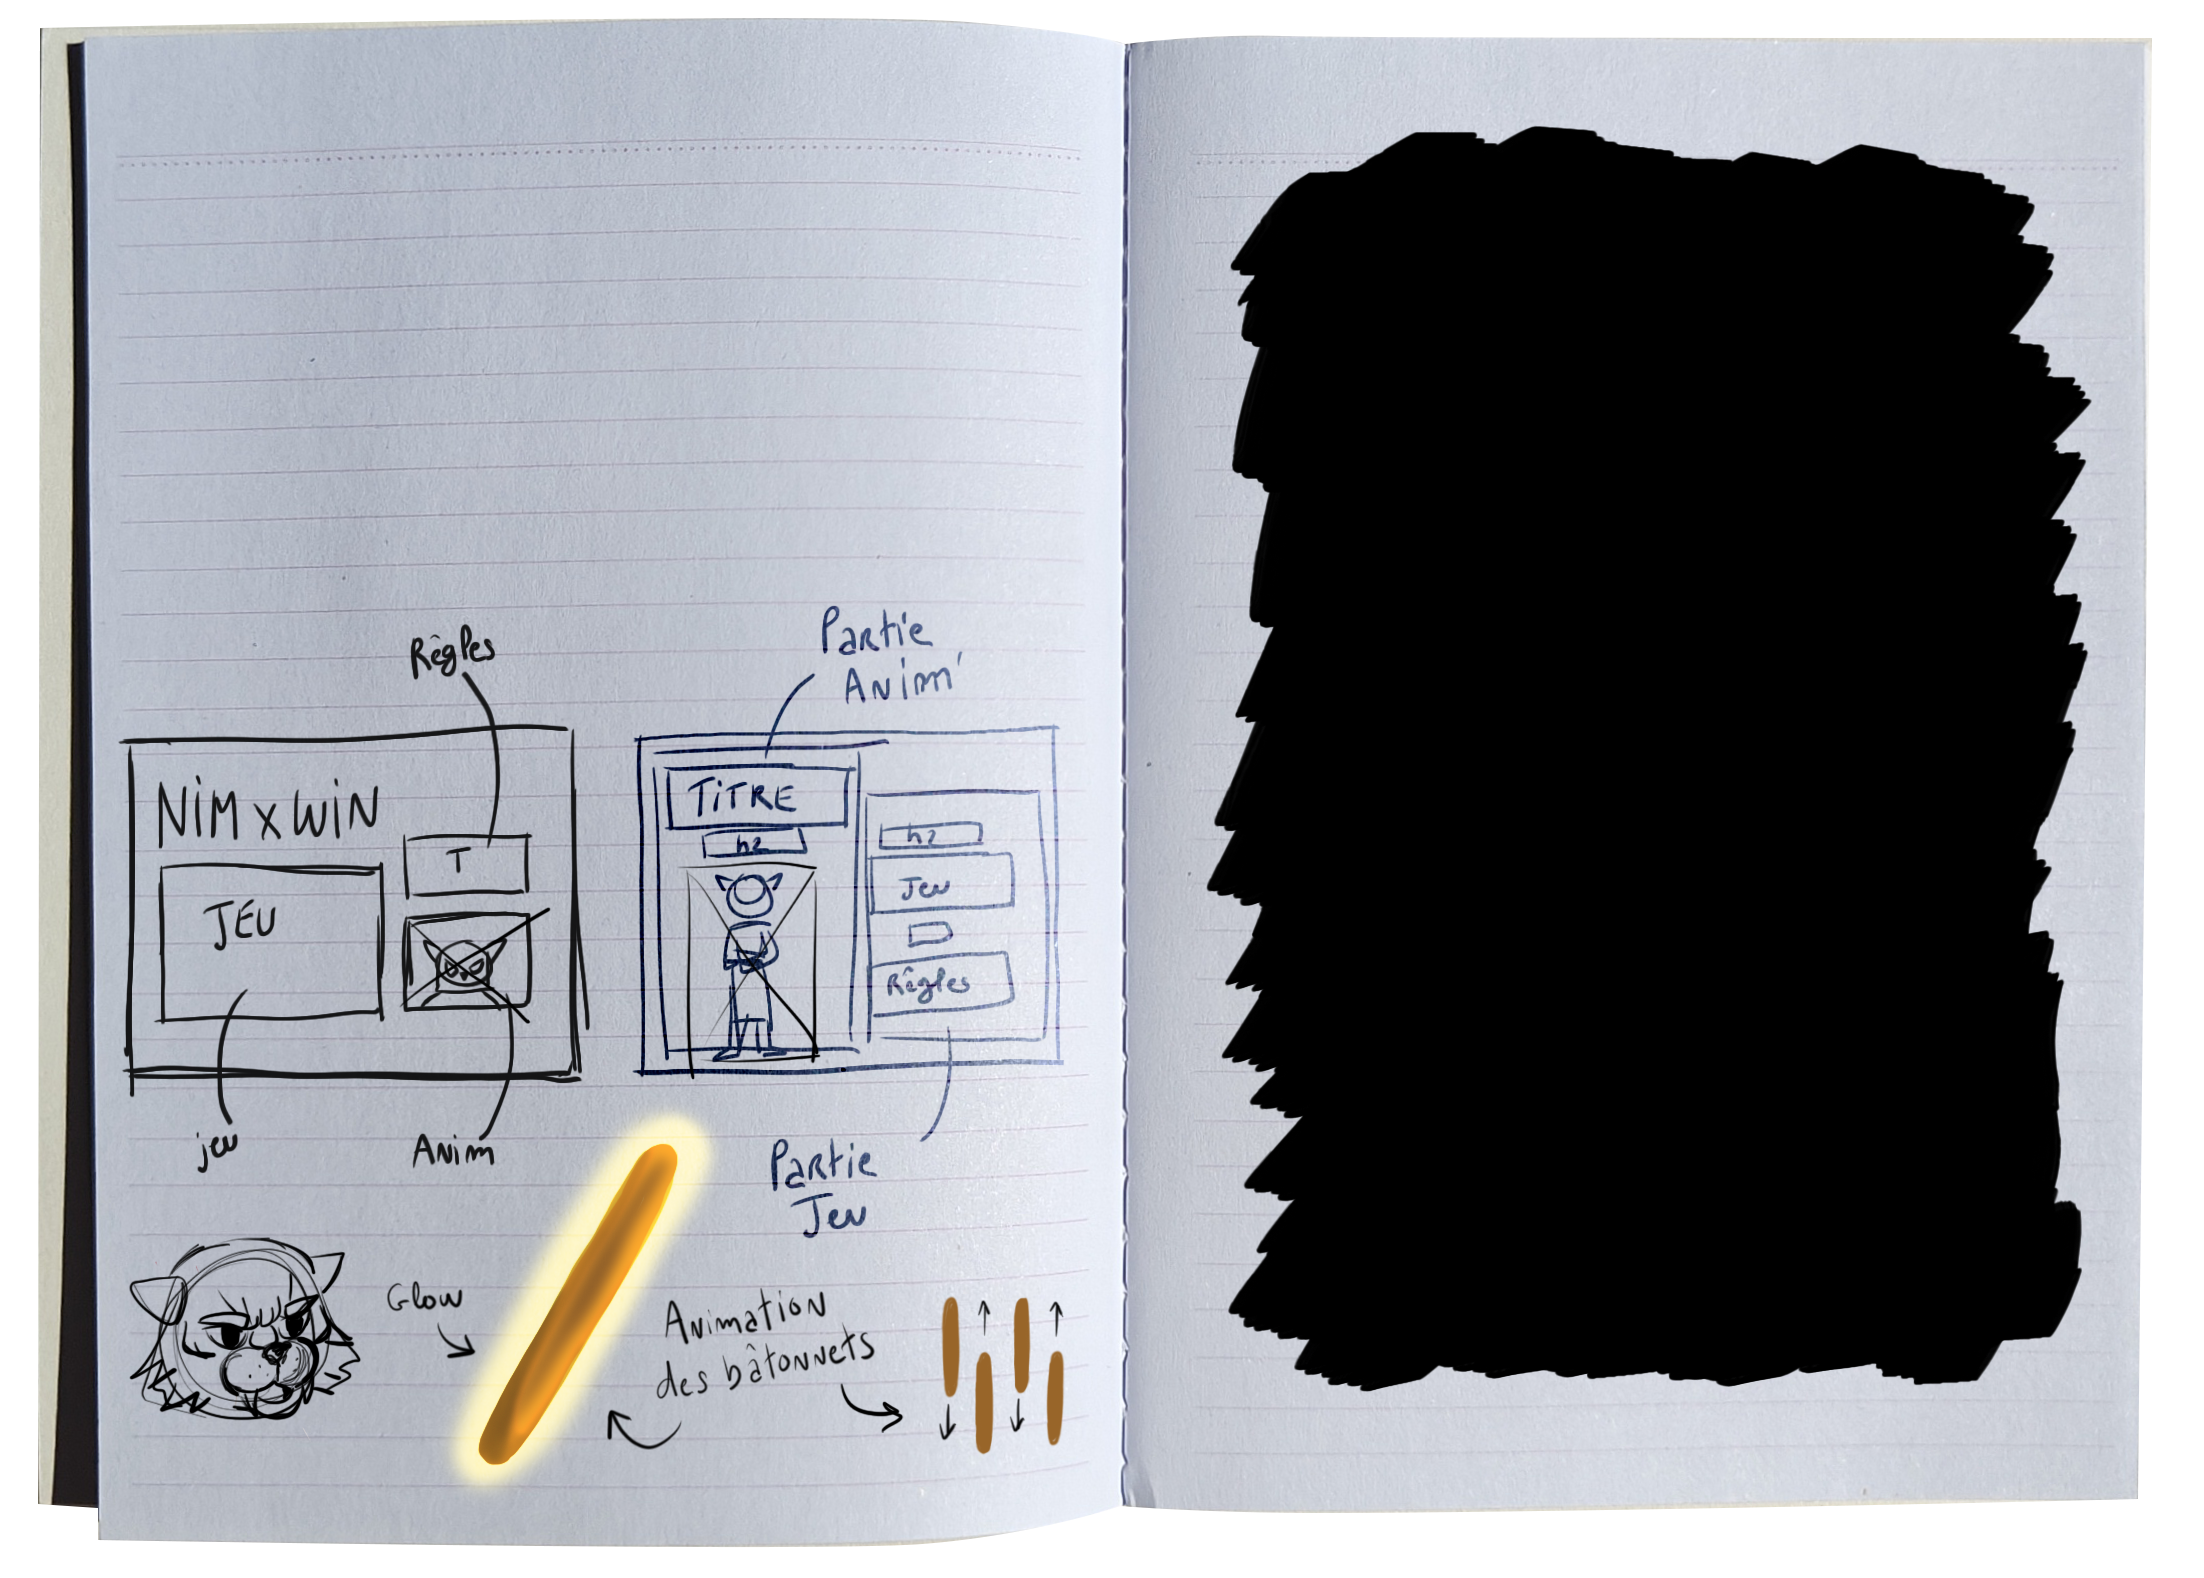 Règles
NiM x WiN
T
JEU
jeu
Anim
Partie
Anim'
TiTRE
h2
h2
Jeu
Règles
Partie
Jeu
Glow
Animation
des bâtonnets